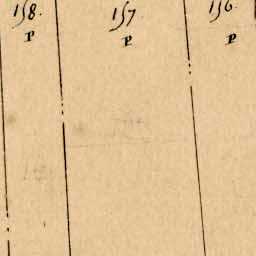 158. 157. 156.
P P P